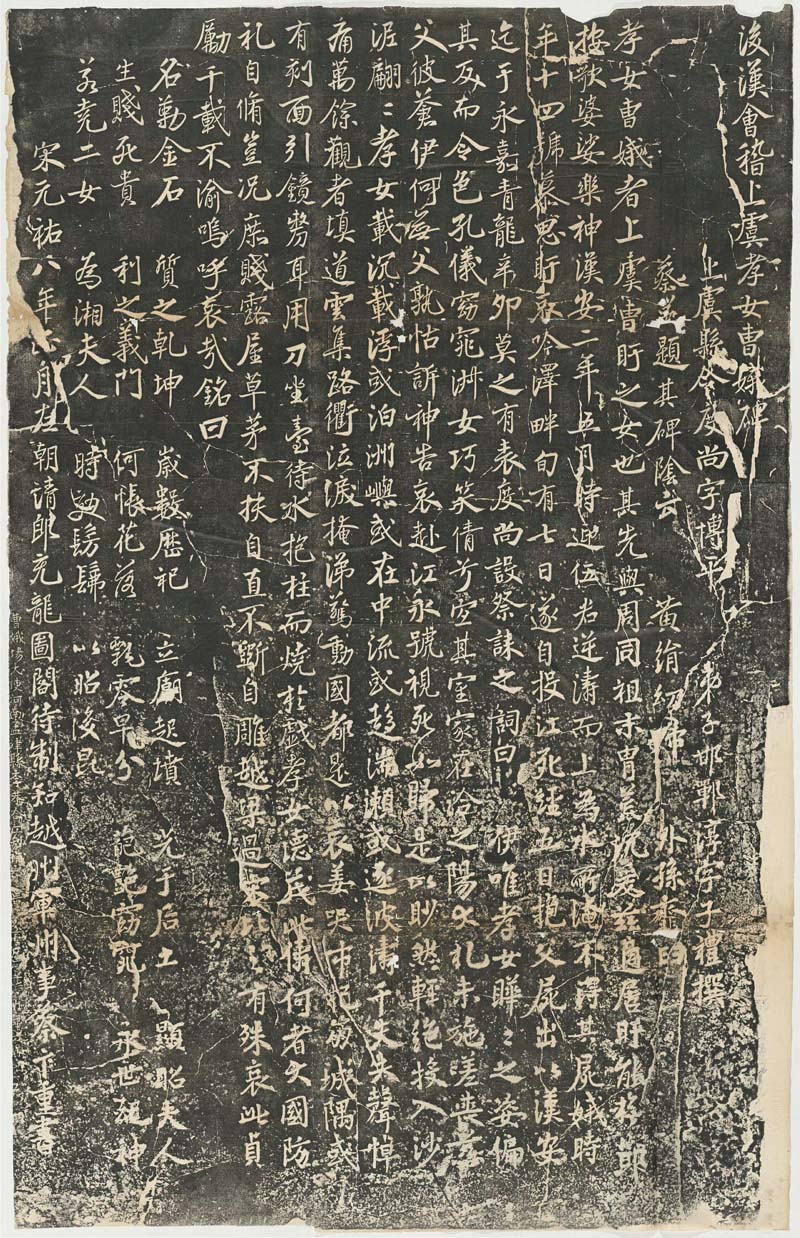 後漢會稽上虞孝女曹娥碑
上虞縣令度尚字博平 弟子邯鄲淳字子禮撰
蔡邕題其碑陰云 黃絹幼婦 外孫虀臼
孝女曹娥者上虞曹盱之女也其先與周同祖末胄荒沉爰茲適居盱能撫節
按歌婆娑樂神漢安二年五月時迎伍君逆濤而上為水所淹不得其屍娥時
年十四號慕思盱哀吟澤畔旬有七日遂自投江死經五日抱父屍出以漢安
迄于永嘉青龍辛卯莫之有表度尚設祭誄之詞曰 伊唯孝女曄〻之姿偏
其反而令色孔儀窈窕淑女巧笑倩兮宜其室家在洽之陽大礼未施嗟喪慈
父彼蒼伊何無父孰怙訴神告哀赴江永號視死如歸是以眇然輕絕投入沙
泥翩〻孝女載沉載浮或泊洲嶼或在中流或趨湍瀨或逐波濤千夫失聲悼
痛萬餘觀者填道雲集路衢泣淚掩涕驚動國都是以哀姜哭市杞崩城隅或
有剋面引鏡剺耳用刀坐臺待水抱柱而燒於戲孝女德茂此儔何者大國防
礼自脩豈況庶賤露屋草茅不扶自直不斲自雕越梁過宋比之有殊哀此貞
勵千載不渝嗚呼哀哉銘曰
名勒金石 質之乾坤 歲數歷祀 立廟起墳 光于后土 顯昭夫人
生賤死貴 利之義門 何悵花落 飄零早分 葩豔窈窕 永世配神
若堯二女 為湘夫人 時效髣髴 以昭後昆
宋元祐八年正月左朝請郎充龍圖閣待制知越州軍州事蔡卞重書